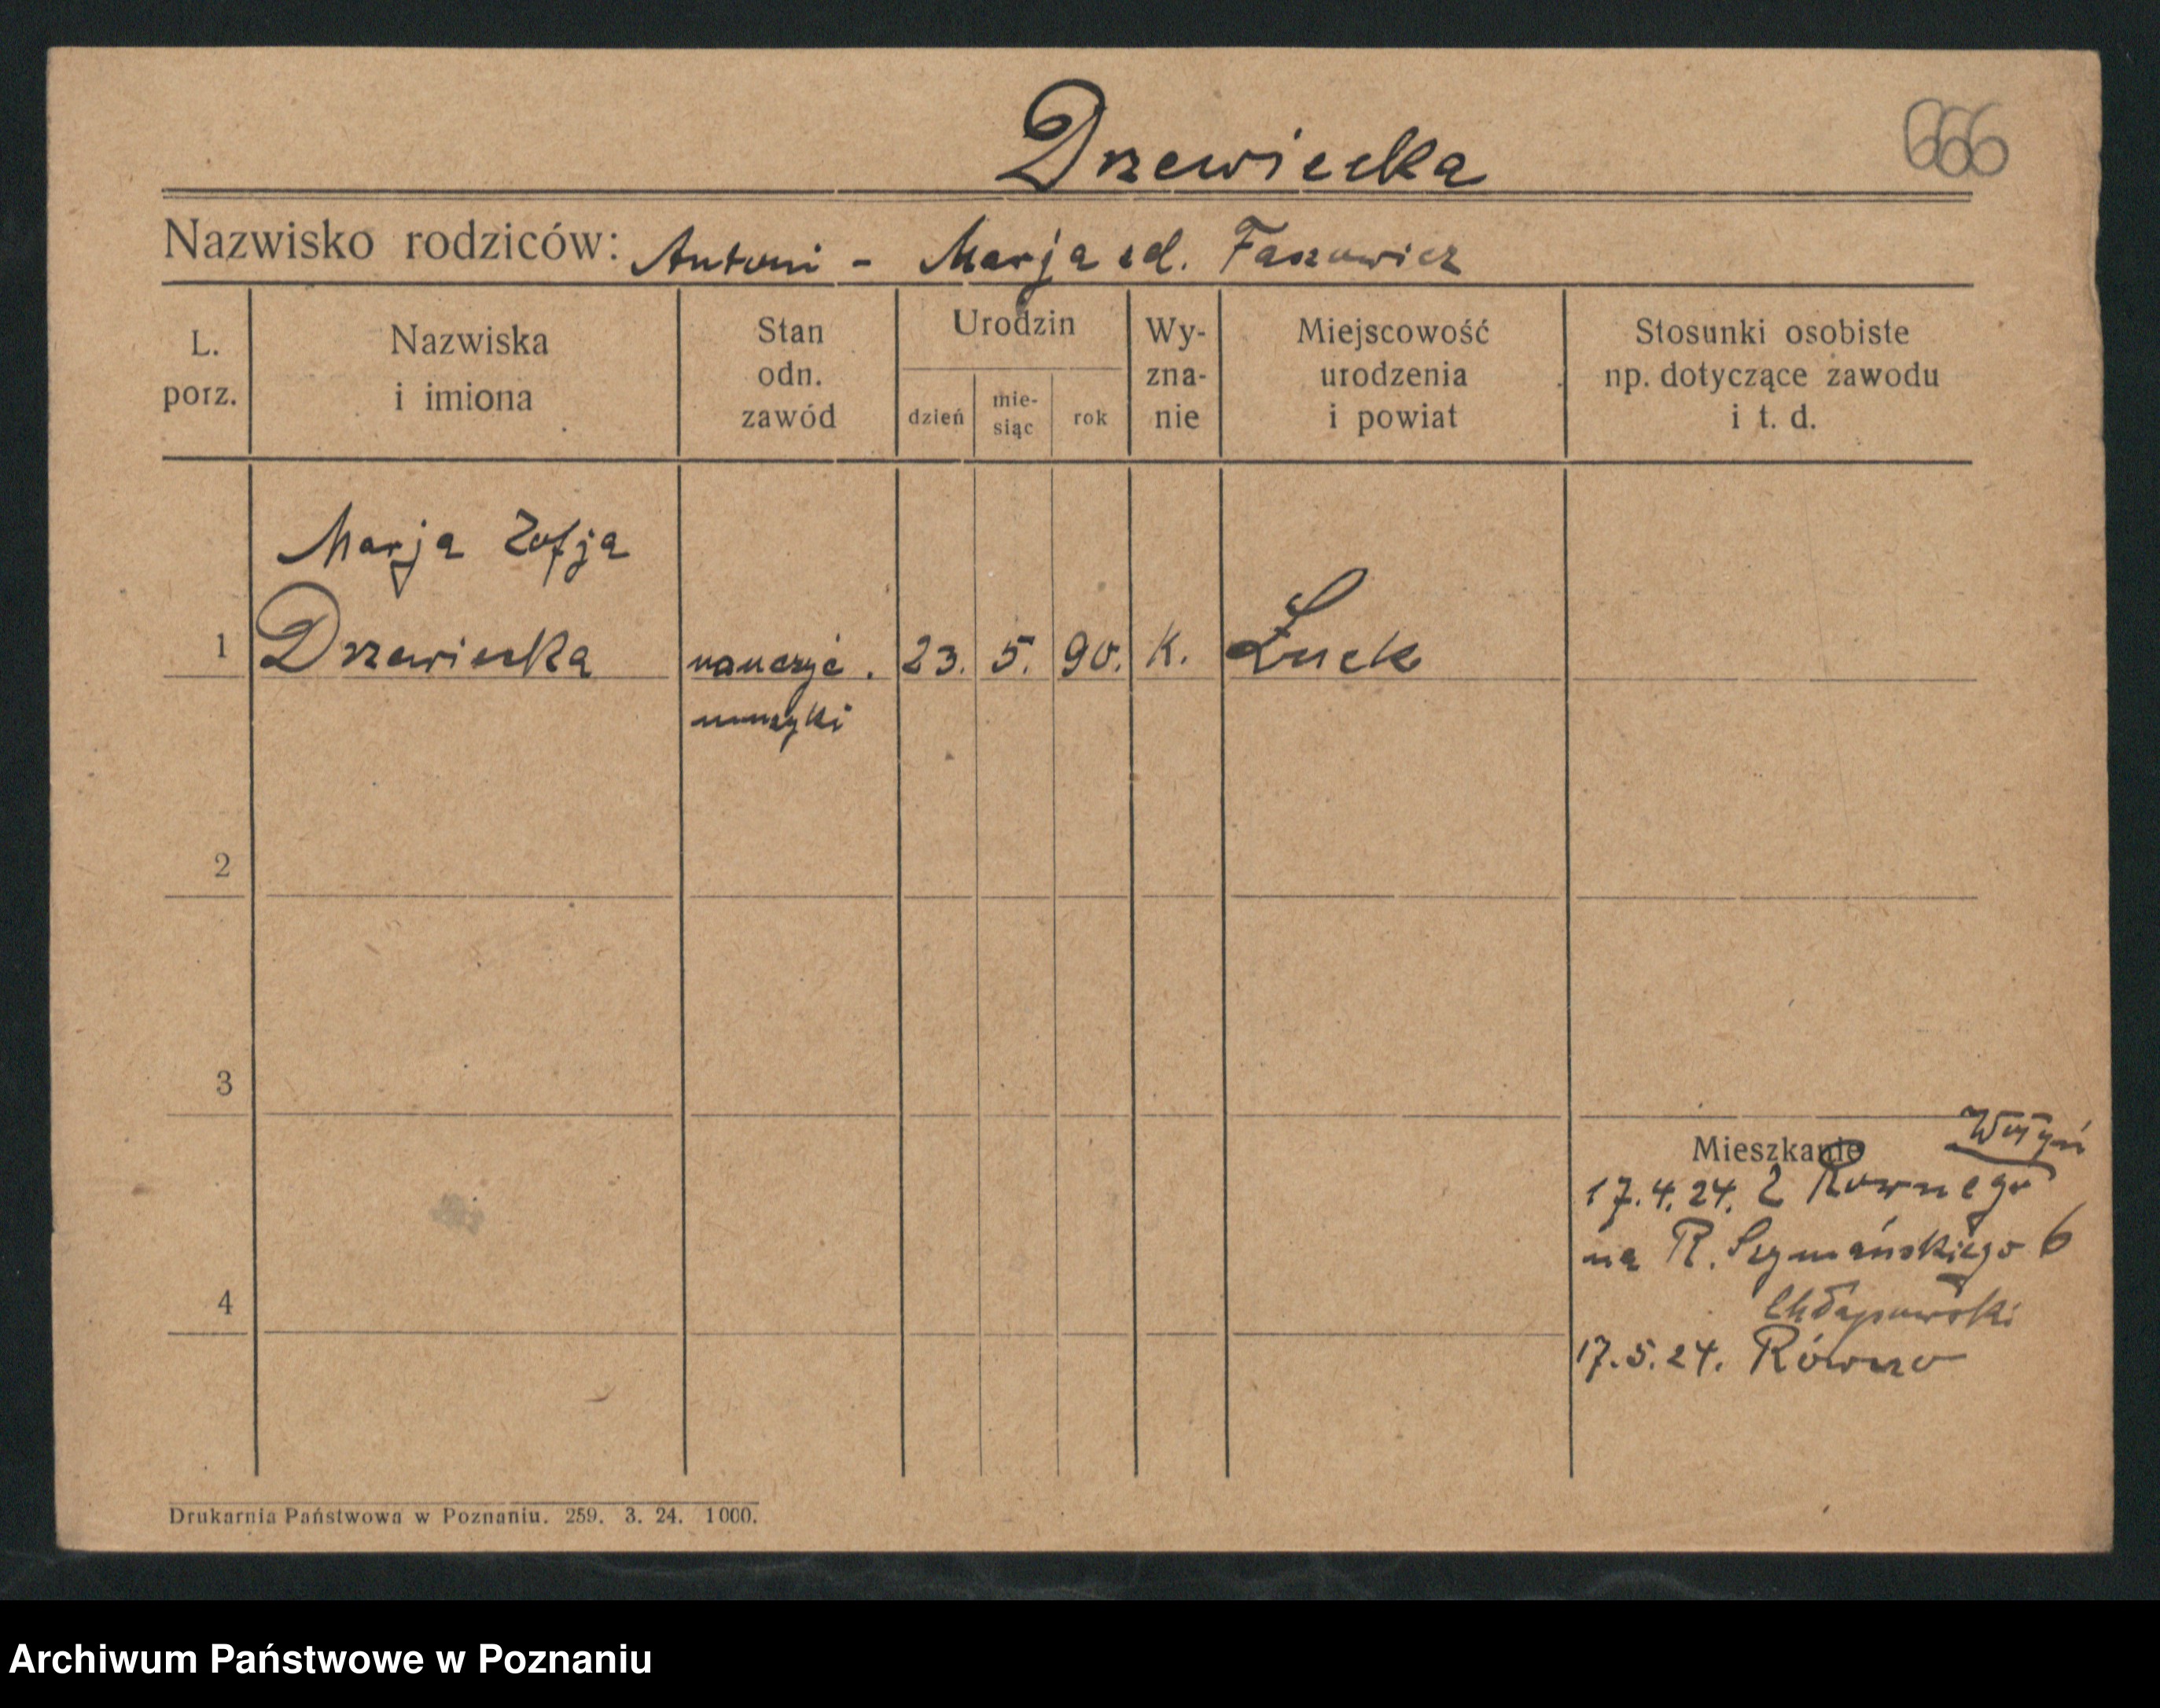 Drzewiecka
666
Nazwisko rodziców: Antoni - Marja zd.
L. porz.
Nazwiska i imiona
Stan odn. zawód
Urodzin
dzień
mie-
siąc
rok
Wy-
zna-
nie
Miejscowość
urodzenia
i powiat
Stosunki osobiste
np. dotyczące zawodu
i t. d.
Marja Zofja
1 Drzewiecka nauczyć. 23. 5. 90. K. Łuck
muzyki
2
3
Wołyń
Mieszkanie
17.4.24. Z Rownego
na R. Szymańskiego 6
4
Chłapowski
17.5.24. Równo
Drukarnia Państwowa w Poznaniu. 259. 3. 24. 1000.
Archiwum Państwowe w Poznaniu